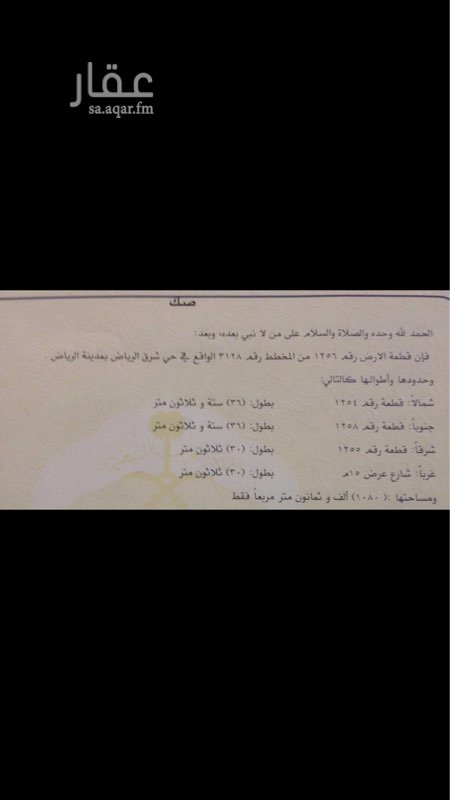 عقار
sa.aqar.fm
صك
الحمد لله وحده والصلاة والسلام على من لا نبي بعده، وبعد:
فإن قطعة الارض رقم ١٢٥٦ من المخطط رقم ٣١٢٨ الواقع في حي شرق الرياض بمدينة الرياض .
وحدودها وأطوالها كالتالي:
شمالاً: قطعة رقم ١٢٥٤ بطول: (٣٦) ستة و ثلاثون متر
جنوباً: قطعة رقم ١٢٥٨ بطول: (٣٦) ستة و ثلاثون متر
شرقاً: قطعة رقم ١٢٥٥ بطول: (٣٠) ثلاثون متر
غرباً: شارع عرض ١٥م بطول: (٣٠) ثلاثون متر
ومساحتها :( ١٠٨٠) ألف و ثمانون متر مربعاً فقط